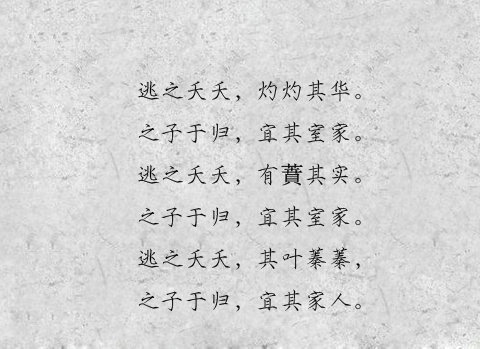 逃之夭夭，灼灼其华。
之子于归，宜其室家。
逃之夭夭，有蕡其实。
之子于归，宜其室家。
逃之夭夭，其叶蓁蓁，
之子于归，宜其家人。